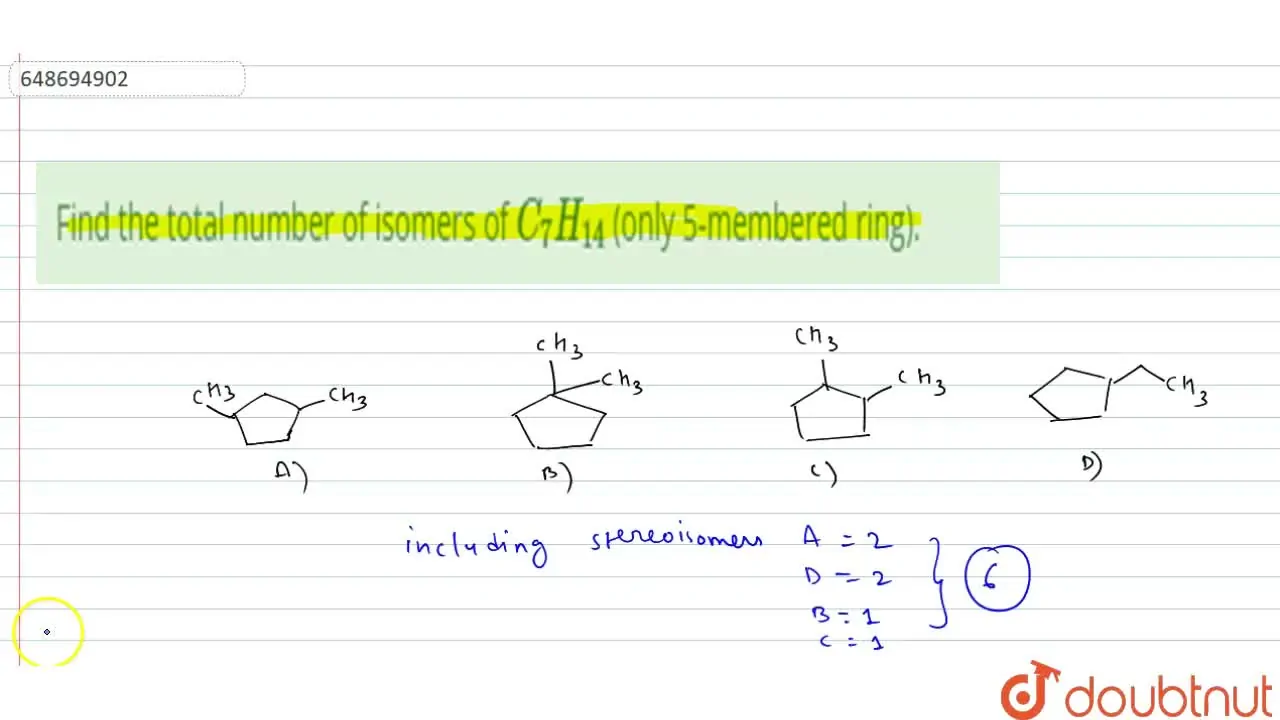 648694902
Find the total number of isomers of C₇H₁₄ (only 5-membered ring).
CH₃ CH₃
A)
CH₃
CH₃
B)
CH₃
CH₃
C)
CH₃
D)
including stereoisomers A = 2
D = 2
B = 1
C = 1
6
doubtnut